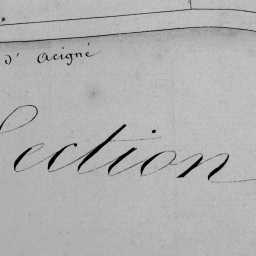 d' Acigné
Section